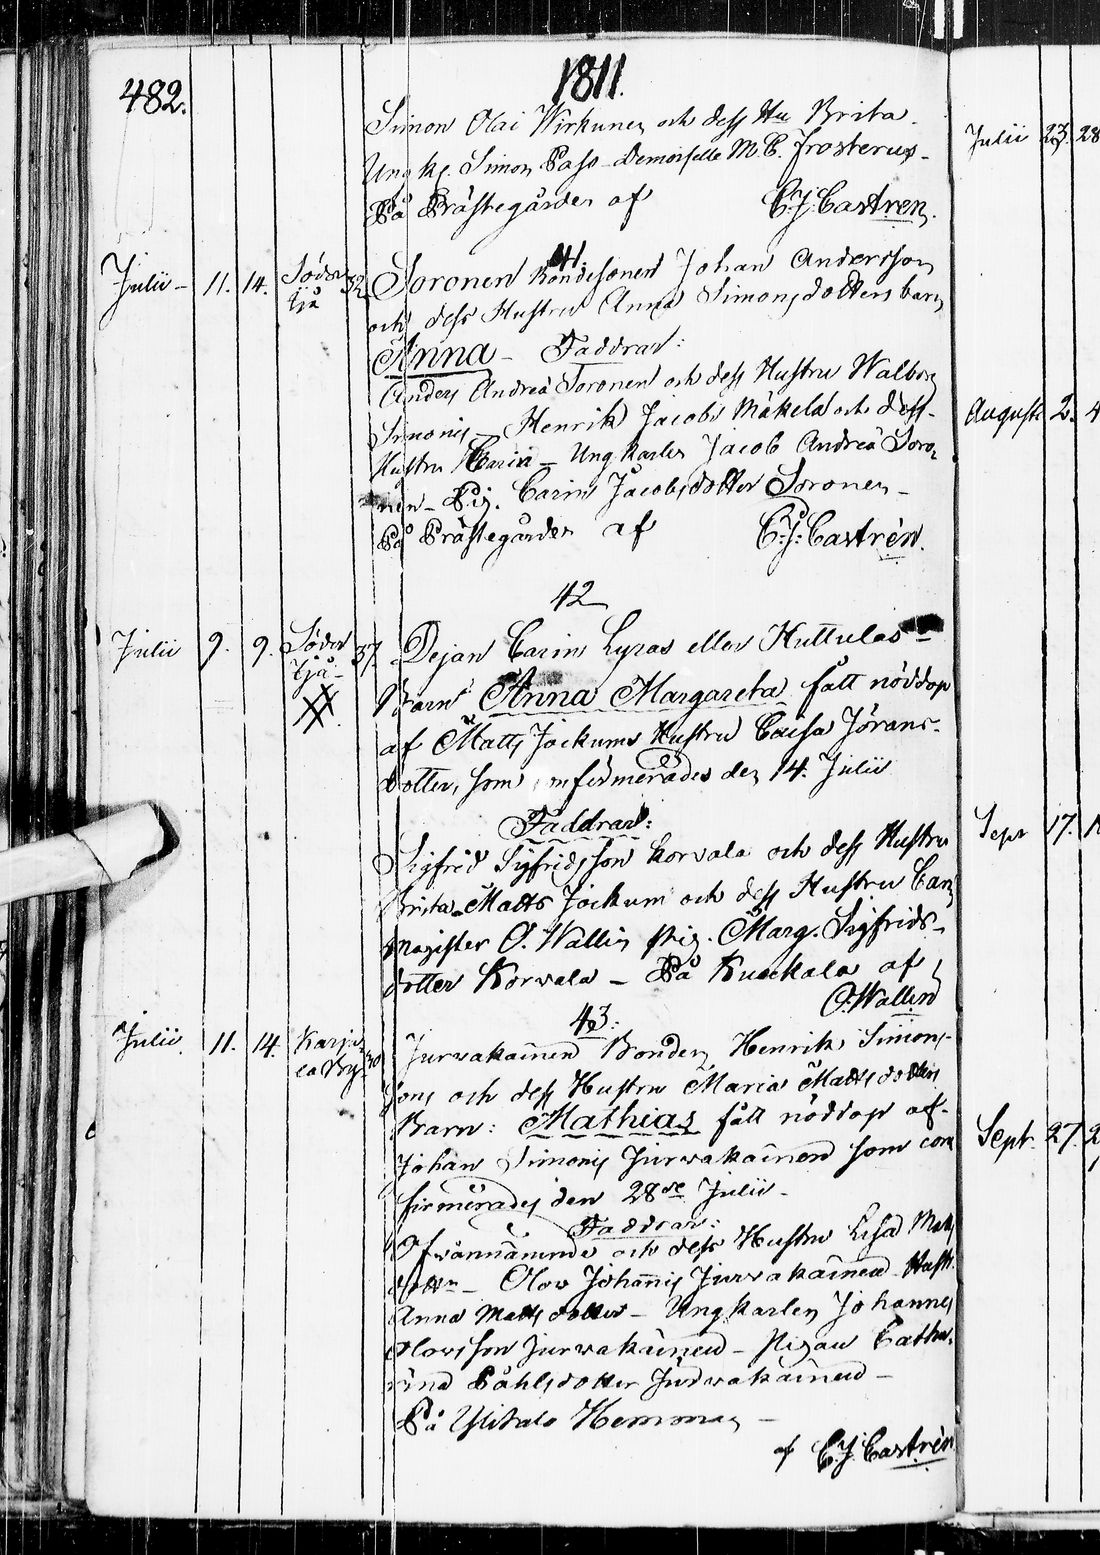 482.
1811.
Simon Olai Wirkunen och dess Hu Brita
Ungk. Simon Paso Demoiselle M. C. Frosterus
På Prästegården af C. J. Castrén.
41.
Julii 11. 14. Söder tjä 32. Soronen Bondesonen Johan Andersson
och dess Hustru Anna Simonsdotters barn
Anna – Faddrar:
Anders Andreæ Soronen och dess Hustru Walborg
Simonis – Henrik Jacobs Mäkelä och dess
Hustru Caria – Ungkarlen Jacob Andreæ Soro
nen – Pig. Carin Jacobsdotter Soronen –
På Prästegården af C. J. Castrén.
42
Julii 9. 9. Söder tjä 37. Pejan Carin Lyras eller Huttulas
Barn Anna Margareta fått nöddop
af Matts Jockums Hustru Caisa Jörans-
dotter, som confirmerades den 14. Julii
Faddrar:
Sigfrid Sigfridsson Korvala och dess Hustru
Brita – Matts Jockum och dess Hustru Carin
Magister O. Wallin pig. Marg. Sigfrids-
dotter Korvala – På af
O. Wallin
43.
Julii 11. 14. Karja la By 30 Jurvakainen Bonden Henrik Simons-
sons och dess Hustru Maria Mattsdotters
Barn: Mathias fått nöddop af
Johan Simonis Jurvakainen som con
firmerades den 28de Julii –
Faddrar:
Ofvannämnde och dess Hustru Lisa Matts
dotter – Olov Johannis Jurvakainen Hustr.
Anna Mattsdotter – Ungkarlen Johannes
Olovsson Jurvakainen – Pigan Catha-
rina Påhlsdotter Jurvakainen –
På Ylitalo Hemman –
af C. J. Castrén
Julii 23. 28
Augusti 2. 4
Sept 17. 1
Sept. 27. 2